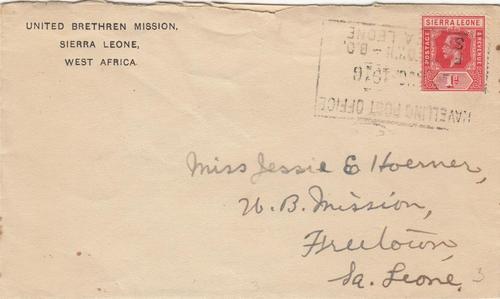 UNITED BRETHREN MISSION,
SIERRA LEONE,
WEST AFRICA.
SIERRA LEONE
POSTAGE & REVENUE
1d
AVELLING POST OFFICE
1916
B.O.
A LEONE
Miss Jessie E Hoerner,
U. B. Mission,
Freetown,
Sa. Leone,
3